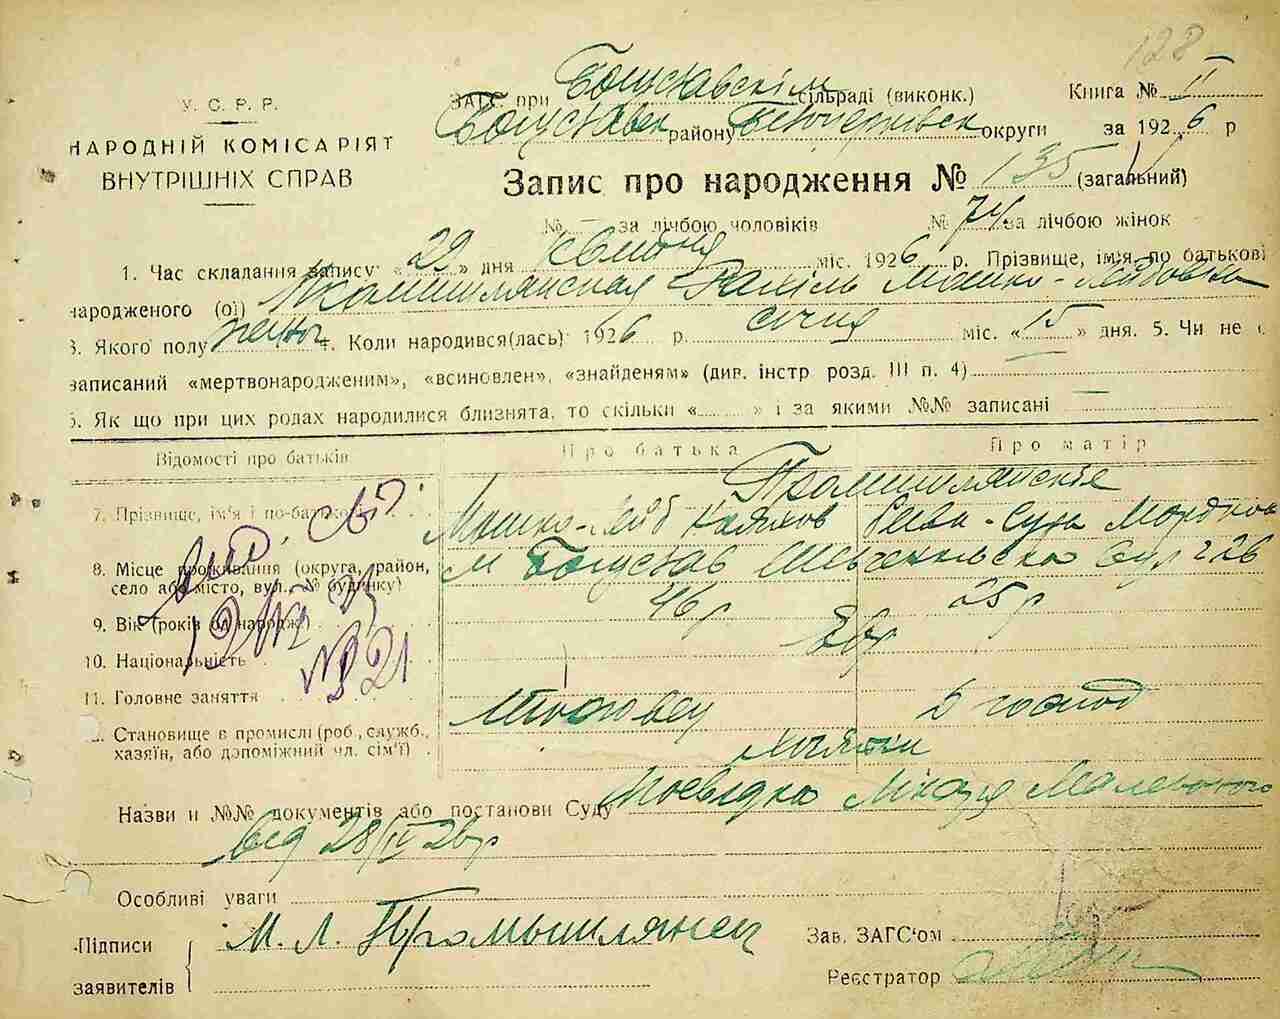 128
У. С. Р. Р.
НАРОДНІЙ КОМІСАРІЯТ
ВНУТРІШНІХ СПРАВ
ЗАГС. при Богуславскім сільраді (виконк.) Книга № II
Богуславск району Білоцерківск округи за 1926 р
Запис про народження № 135 (загальний)
№ — за лічбою чоловіків № 74 за лічбою жінок
1. Час складання запису: «29» дня квітня міс. 1926 р. Прізвище, ім'я, по батькові
народженого (ої) Рахіль Мошко-Лейбовна
3. Якого полу жіноч 4. Коли народився(лась) 1926 р. січня міс. «15» дня. 5. Чи не є
записаний «мертвонародженим», «всиновлен», «знайденям» (див. інстр розд. III п. 4)
6. Як що при цих родах народилися близнята, то скільки «......» і за якими №№ записані —
Відомості про батьків Про батька Про матір
7. Прізвище, ім'я і по-батькові
Мошко-Лейб Рива-Сура Мордков
8. Місце проживання (округа, район, село або місто, вул., № будинку)
м Богуслав Шевченківска вул 226
9. Вік (років од народж.) 46 р 25 р
10. Національність Євр
11. Головне заняття д господ
Становище в промислі (роб., служб., хазяїн, або допоміжний чл. сім'ї)
хазяїн
Назви и №№ документів або постанови Суду посвідка лікаря
від 28/IV 26 р
Особливі уваги
Підписи заявителів { М. Л. Промышлянец
Зав. ЗАГС'ом
Реєстратор